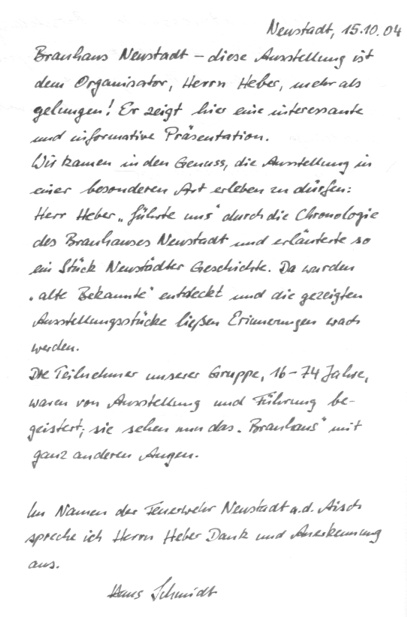 Neustadt, 15.10.04
Brauhaus Neustadt – diese Ausstellung ist
dem Organisator, Herrn Heber, mehr als
gelungen! Er zeigt hier eine interessante
und informative Präsentation.
Wir kamen in den Genuss, die Ausstellung in
einer besonderen Art erleben zu dürfen:
Herr Heber „führte uns“ durch die Chronologie
des Brauhauses Neustadt und erläuterte so
ein Stück Neustädter Geschichte. Da wurden
„alte Bekannte“ entdeckt und die gezeigten
Ausstellungsstücke ließen Erinnerungen wach
werden.
Die Teilnehmer unserer Gruppe, 16–74 Jahre,
waren von Ausstellung und Führung be-
geistert; sie sehen nun das „Brauhaus“ mit
ganz anderen Augen.
Im Namen der Feuerwehr Neustadt a.d. Aisch
spreche ich Herrn Heber Dank und Anerkennung
aus.
Hans Schmidt